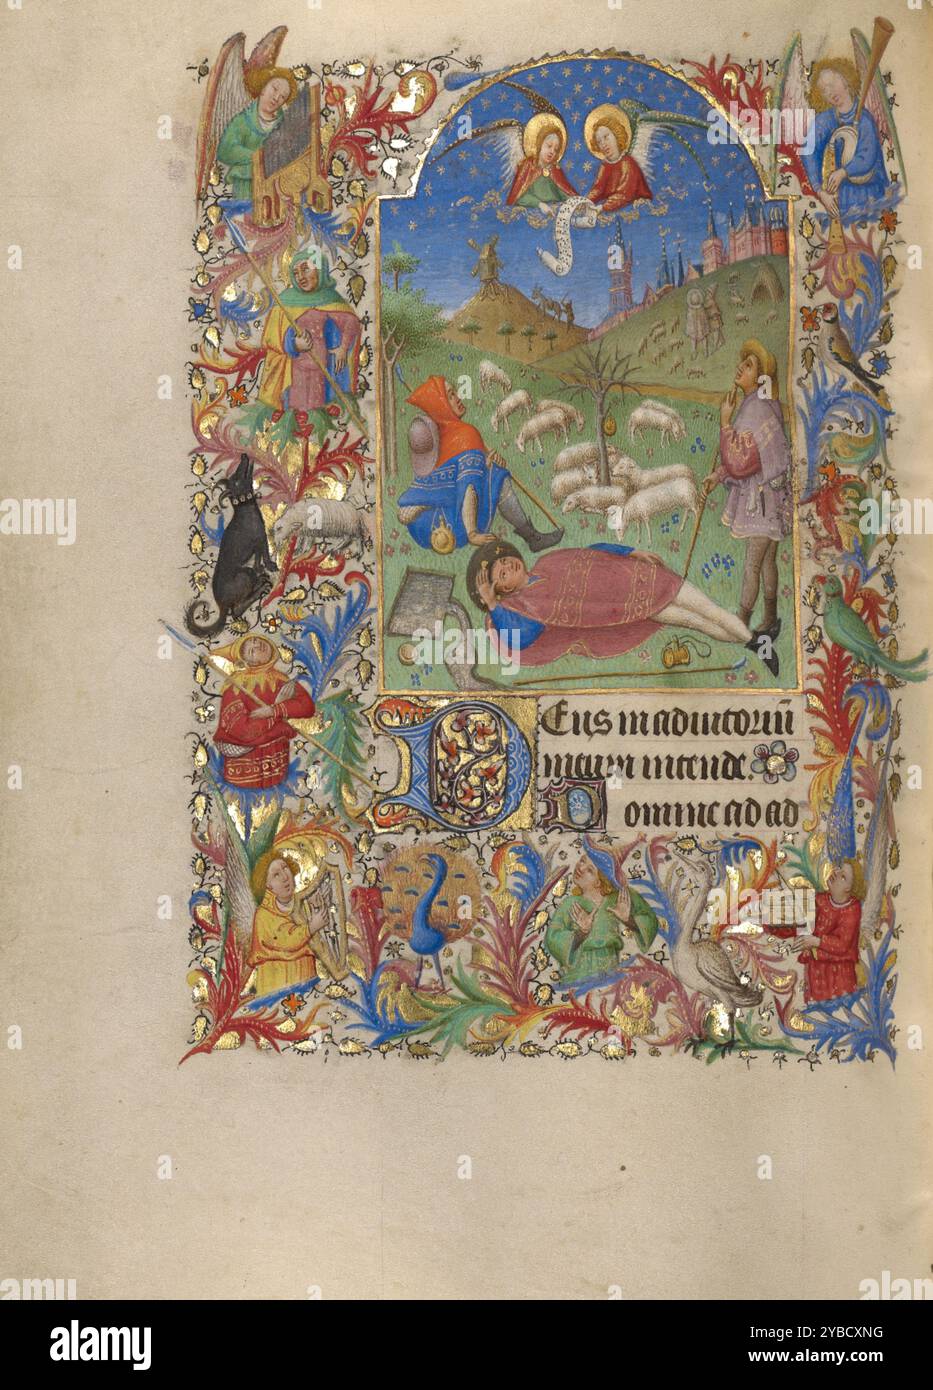 Deus in adiutoriū
meum intende.
Domine ad ad
alamy
Image ID: 2YBCXNG
www.alamy.com